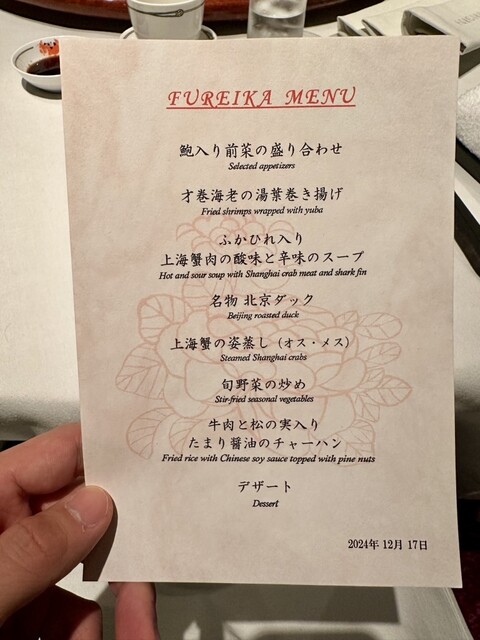 FUREIKA MENU
鮑入り前菜の盛り合わせ
Selected appetizers
才巻海老の湯葉巻き揚げ
Fried shrimps wrapped with yuba
ふかひれ入り
上海蟹肉の酸味と辛味のスープ
Hot and sour soup with Shanghai crab meat and shark fin
名物 北京ダック
Beijing roasted duck
上海蟹の姿蒸し（オス・メス）
Steamed Shanghai crabs
旬野菜の炒め
Stir-fried seasonal vegetables
牛肉と松の実入り
たまり醤油のチャーハン
Fried rice with Chinese soy sauce topped with pine nuts
デザート
Dessert
2024年 12月 17日